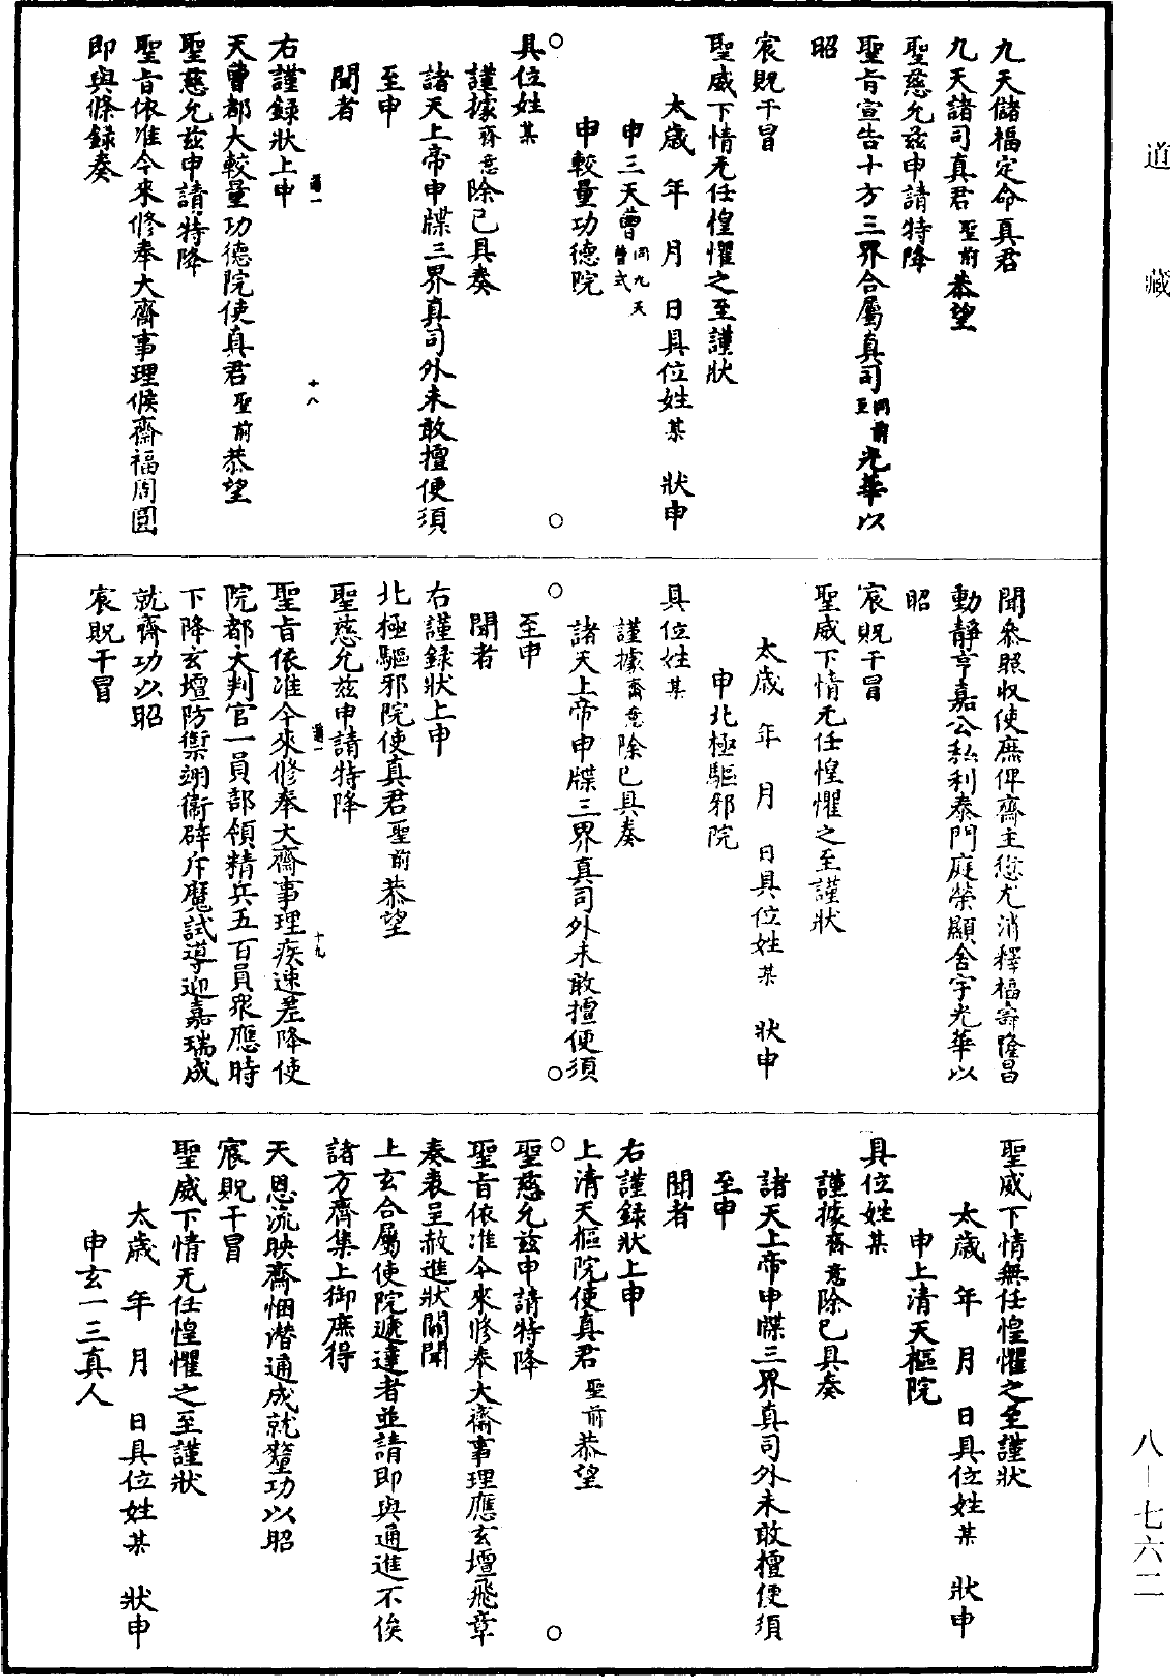 道藏
八—七六二
九天儲福定命真君
九天諸司真君聖前恭望
聖慈允茲申請特降
聖旨宣告十方三界合屬真司同前至光華以
昭
宸貺干冒
聖威下情无任惶懼之至謹狀
太歲年月日具位姓某狀申
申三天曹同九天曹式
申較量功德院
具位姓某
謹據齋意除已具奏
諸天上帝申牒三界真司外未敢擅便須
至申
聞者
右謹錄狀上申
天曹都大較量功德院使真君聖前恭望
聖慈允茲申請特降
聖旨依准今來修奉大齋事理候齋福周圓
即與條錄奏
十八
聞叅照収使庶俾齋主愆尤消釋福壽隆昌
動靜亨嘉公私利泰門庭榮顯舍宇光華以
昭
宸貺干冒
聖威下情无任惶懼之至謹狀
太歲年月日具位姓某狀申
申北極驅邪院
具位姓某
謹據齋意除已具奏
諸天上帝申牒三界真司外未敢擅便須
至申
聞者
右謹錄狀上申
北極驅邪院使真君聖前恭望
聖慈允茲申請特降
十九
聖旨依准今來修奉大齋事理疾速差降使
院都大判官一員部領精兵五百員衆應時
下降玄壇防禦翊衞辟斥魔試導迎嘉瑞成
就齋功以昭
宸貺干冒
聖威下情無任惶懼之至謹狀
太歲年月日具位姓某狀申
申上清天樞院
具位姓某
謹據齋意除已具奏
諸天上帝申牒三界真司外未敢擅便須
至申
聞者
右謹錄狀上申
上清天樞院使真君聖前恭望
聖慈允茲申請特降
聖旨依准今來修奉大齋事理應玄壇飛章
奏表呈赦進狀關聞
上玄合屬使院遞達者並請即與通進不俟
諸方齊集上御庶得
天恩流映齋悃潛通成就釐功以昭
宸貺干冒
聖威下情无任惶懼之至謹狀
太歲年月日具位姓某狀申
申玄一三真人